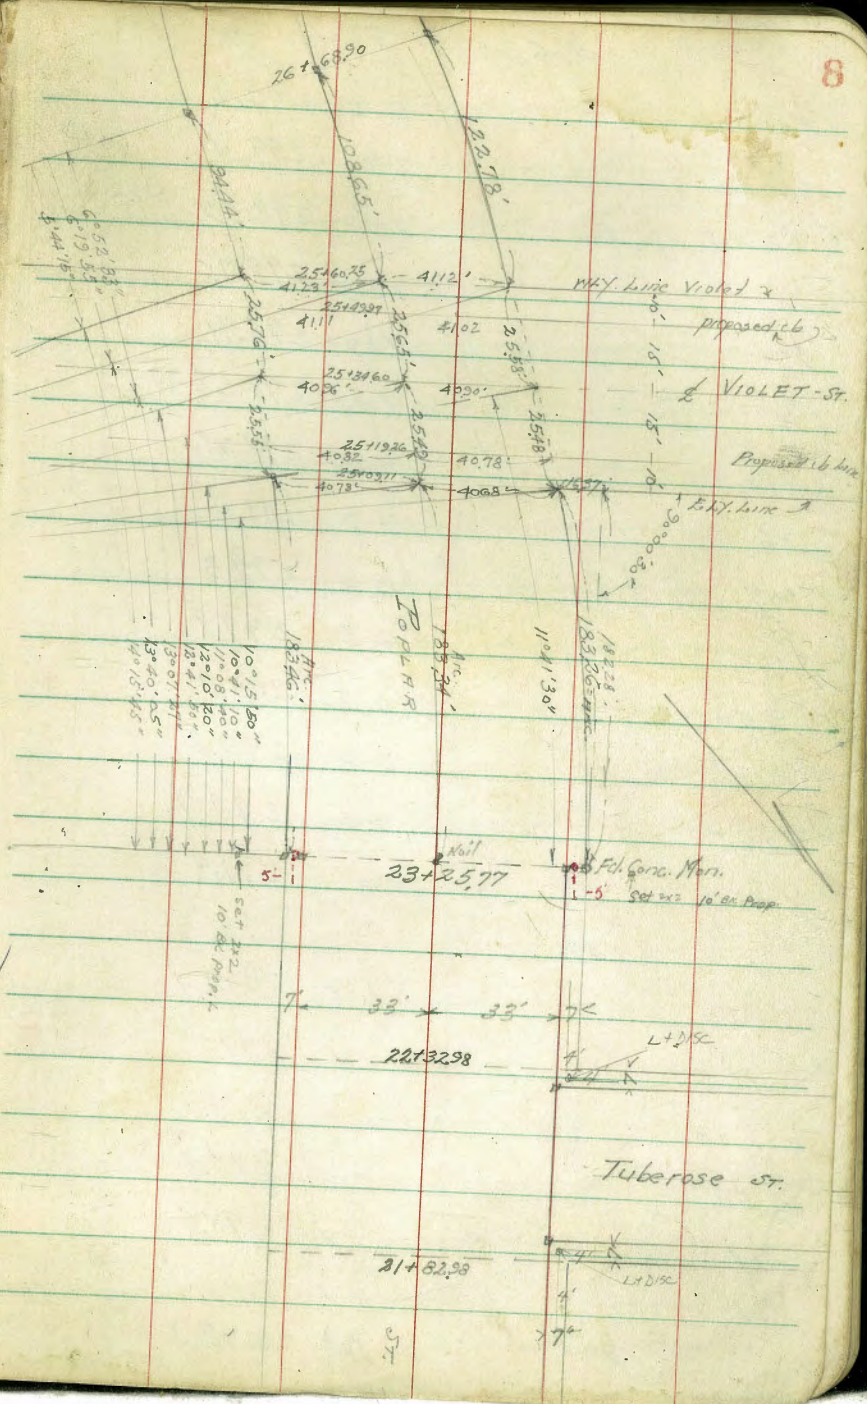 8
26+68.90
94.44'
108.65'
122.78'
6°52'
6°19'
5°44'15"
25+60.75
41.23'
41.12'
WLY. Line Violet
25+49.97
41.11'
41.02
proposed cb
25.76'
25.65'
25.58'
10' - 15' - 15' - 10'
25+34.60
40.96'
40.90'
℄ VIOLET - ST.
25.55'
25.49
25.48'
25+19.26
40.82
40.78'
Proposed cb line
25+09.11
40.73'
40.68
16.97'
ELY. Line
90°00'30"
10°15'50"
10°41'10"
11°08'40"
12°10'20"
12°41'50"
13°07'
13°40'05"
14°15'45"
Arc.
183.46'
POPLAR
Arc.
183.34'
11°41'30"
183.26 = Arc.
182.28'
Nail
5-
23+25.77
-5'
Fd. Conc. Mon.
Set 2x2 10' Bk Prop.
Set 2x2
10' Bk Prop. L
7'
33'
33'
7'
22+32.98
L+DISC
4'
4'
4'
Tuberose ST.
4'
4'
21+82.98
L+DISC
4'
7'
ST.